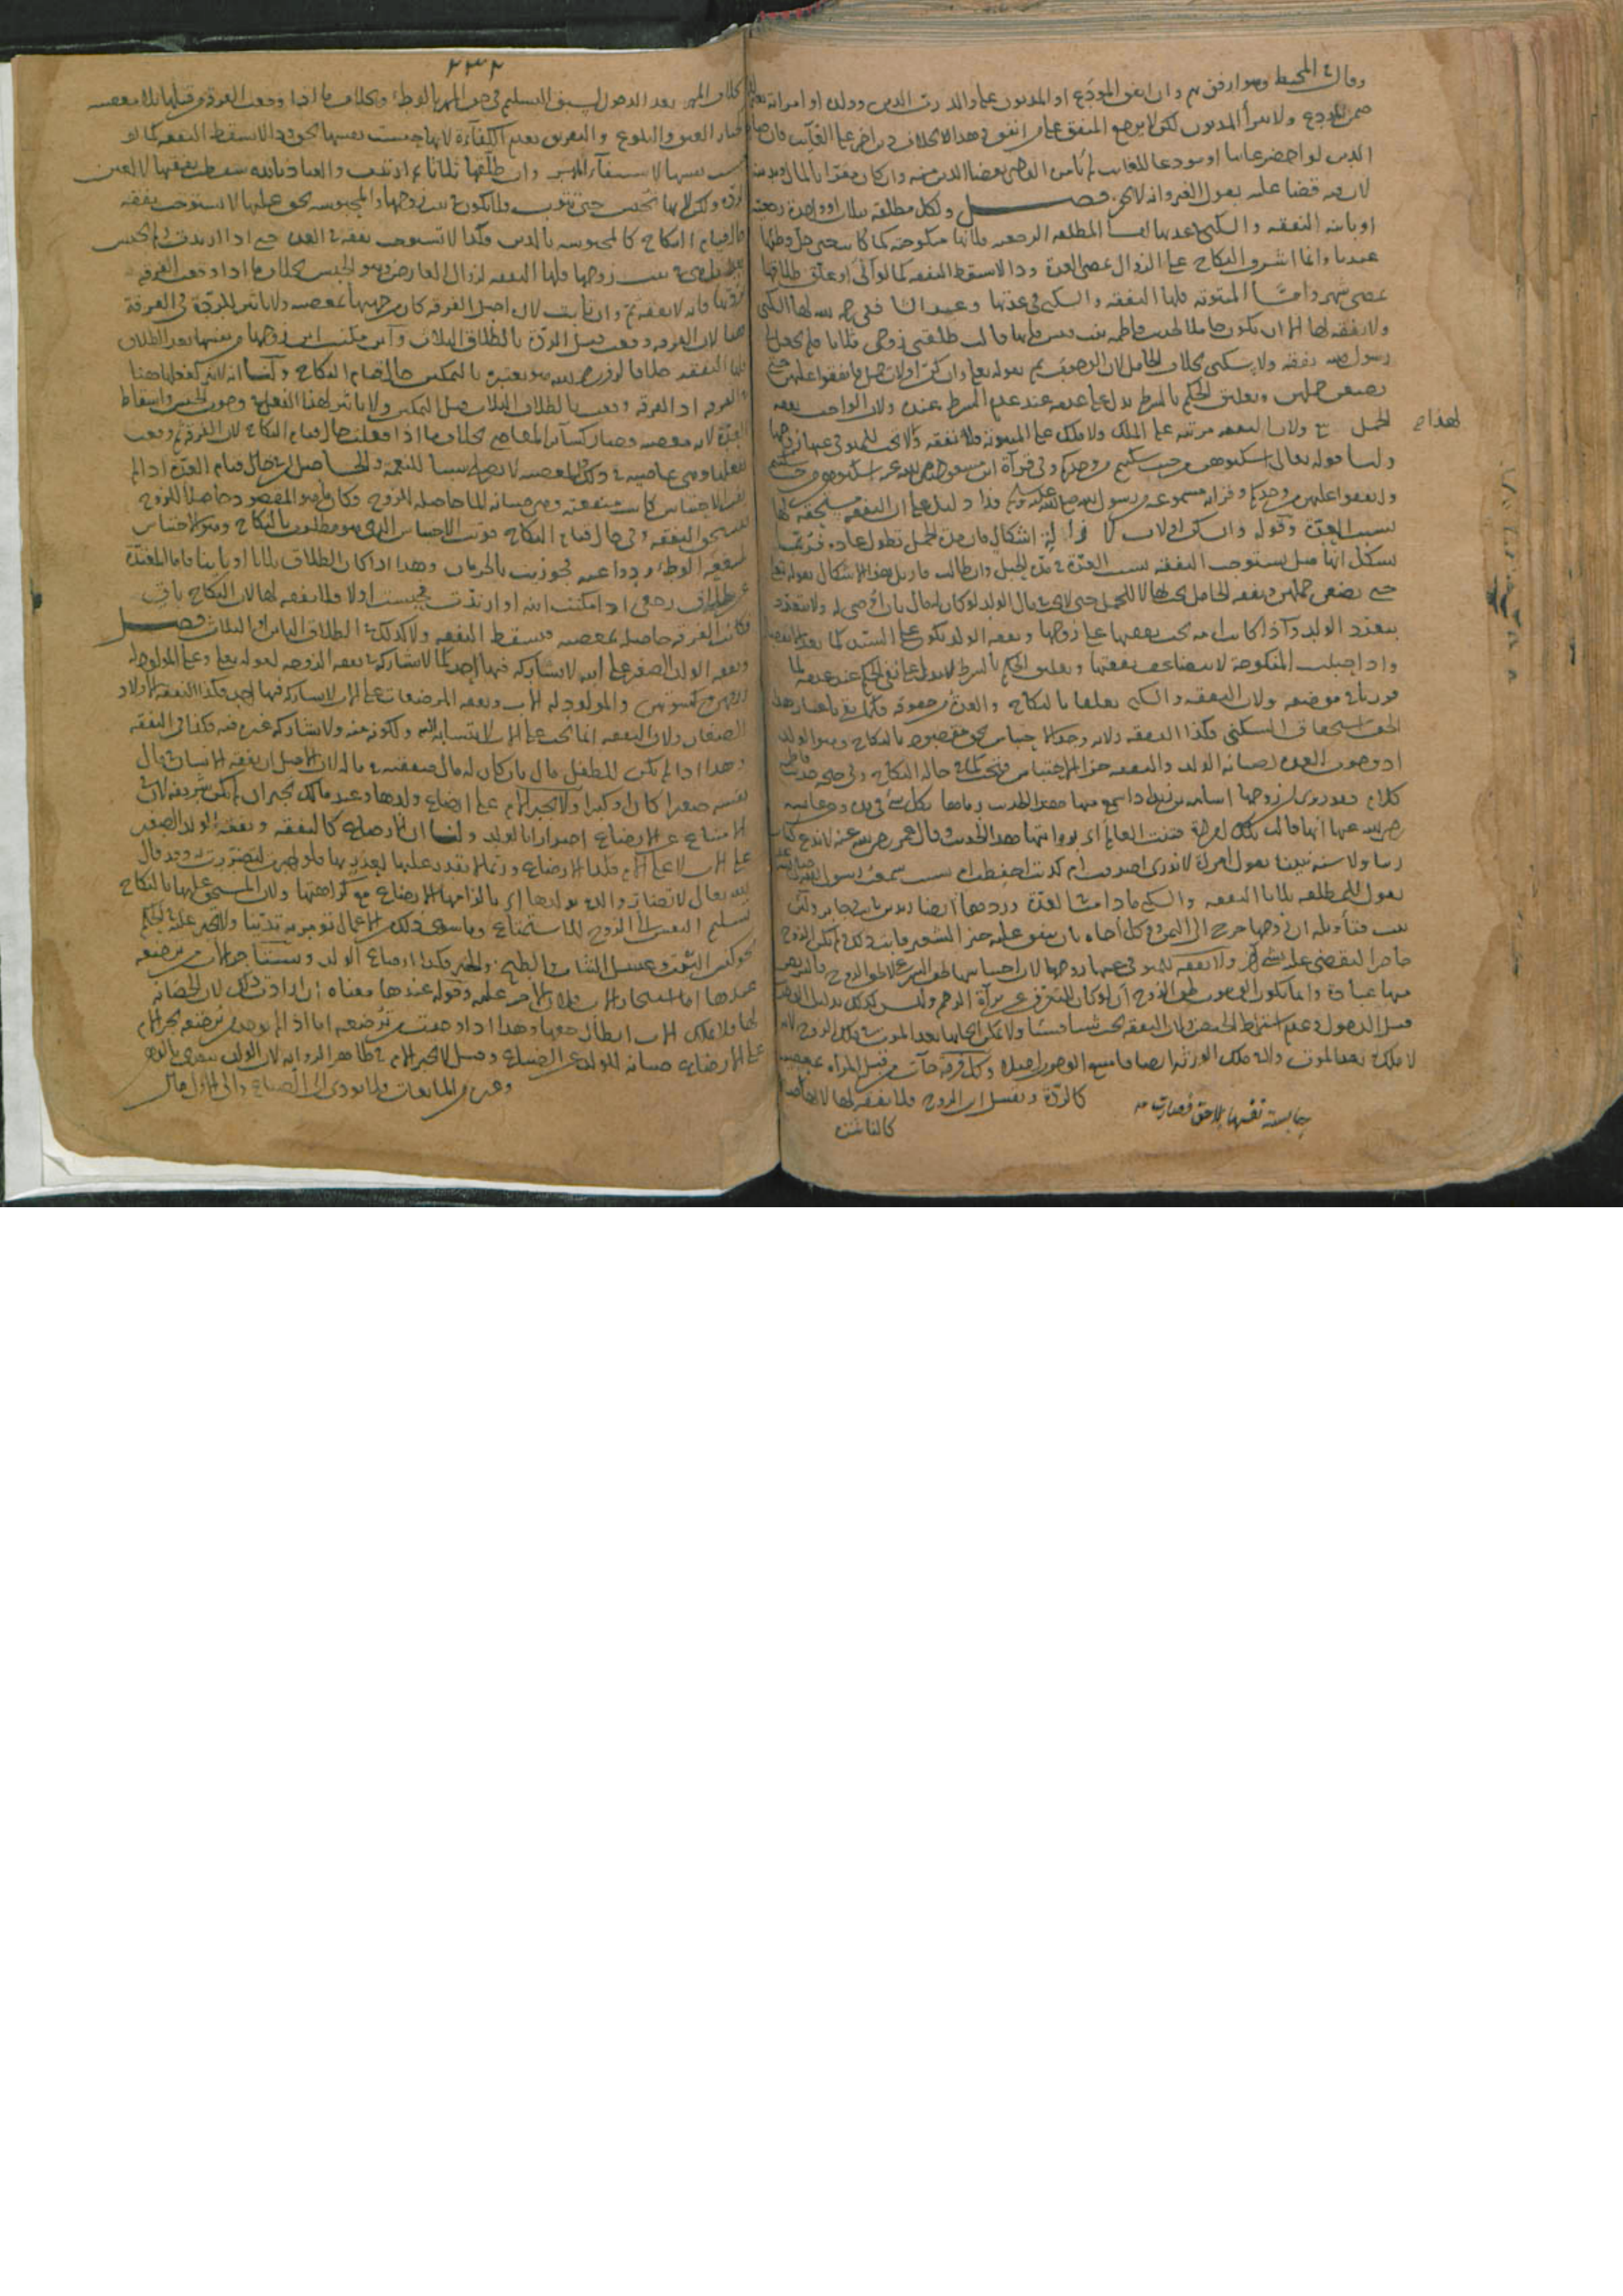 وقال في المحيط وهو ارفق بهم وان انفق المودع او المديون على والد رب الدين وولده او امرأته بغير
ضمن المودع ولا يبرأ المديون لكن لا يرجع المنفق على من انفق
الدين لو احضر غائبا او مودعا للغائب لم يأمر القاضي بقضاء الدين منه وان كان مقرا بالمال
لان فيه قضاء عليه بقول الغير وانه لا يجوز فصل ولكل مطلقة بثلاث او واحدة رجعية
او بائنة النفقة والسكنى في عدتها اما المطلقة الرجعية فلانها منكوحة كما كانت حتى حل وطئها
عندنا وانما اشرف النكاح على الزوال بمضي العدة وذا لا يسقط النفقة كما لو آلى او علق طلاقها
بمضي شهر واما المبتوتة فلها النفقة والسكنى في عدتها وعند الشافعي رحمه الله لها السكنى
ولا نفقة لها الا ان تكون حاملا لحديث فاطمة بنت قيس فانها قالت طلقني زوجي ثلاثا فلم يجعل لي
رسول الله نفقة ولا سكنى بخلاف الحامل لان النص ثم بقوله تعالى وان كن اولات حمل فانفقوا عليهن حتى
يضعن حملهن وتعليق الحكم بالشرط يدل على عدمه عند عدم الشرط عنده ولان الواجب نفقة
الحمل ولان النفقة مرتبة على الملك ولا ملك على المبتوتة فلا نفقة ولا تجب للمتوفى عنها زوجها
لهذا
ولنا قوله تعالى اسكنوهن من حيث سكنتم من وجدكم وفي قرآة ابن مسعود رضي الله عنه اسكنوهن من حيث سكنتم
وانفقوا عليهن من وجدكم وقراءته مسموعة من رسول الله صلى الله عليه وسلم فذا دليل على ان النفقة مستحقة لها
بسبب العدة وقوله وان كن اولات حمل لازالة اشكال فان مدة الحمل تطول عادة فربما
يشكل انها هل تستوجب النفقة بسبب العدة في مدة الحبل وان طالت فازيل هذا الاشكال بقوله تعالى
حتى يضعن حملهن ونفقة الحامل تجب لها لا للحمل حتى لا تجب في مال الولد لو كان له مال بان اوصي له ولا تتعدد
بتعدد الولد واذا كانت امة تجب نفقتها على زوجها ونفقة الولد تكون على السيد
واذا حبلت المنكوحة لا تتضاعف نفقتها وتعليق الحكم بالشرط لا يدل على نفي الحكم عند عدمه لما
قررناه في موضعه ولان النفقة والسكنى تعلقا بالنكاح والعدة من حقوقه
الحق استحقاق السكنى فكذا النفقة ولانه وجد الاحتباس بحق مقصود بالنكاح وهو الولد
اذ وجوب العدة لصيانة الولد والنفقة جزاء الاحتباس فتجب كما في حالة النكاح وفي صحة حديث فاطمة
كلام فقد روي ان زوجها اسامة بن زيد اذا سمع منها هذا الحديث رماها بكل شيء في يده وعن عائشة
رضي الله عنها انها قالت تلك امرأة فتنت العالم اي بروايتها هذا الحديث وقال عمر رضي الله عنه لا ندع كتاب
ربنا ولا سنة نبينا بقول امرأة لا ندري اصدقت ام كذبت احفظت ام نسيت سمعت رسول الله صلى الله عليه
يقول للمطلقة ثلاثا النفقة والسكنى ما دامت في العدة ورده ايضا زيد بن ثابت وجابر ولئن
ثبت فتأويله ان زوجها خرج الى اليمن ووكل اخاه بان ينفق عليها خبز الشعير فابت ذلك ولم يكن الزوج
حاضرا ليقضى عليه بشيء اخر ولا نفقة للمتوفى عنها زوجها لان احتباسها لحق الشرع لا لحق الزوج فالتربص
منها عبادة وانما يكون الوجوب لحق الزوج ان لو كان للتعرف عن برآة الرحم وليس كذلك بدليل الوجوب
قبل الدخول وعدم اشتراط الحيض ولان النفقة تجب شيئا فشيئا ولا يمكن ايجابها بعد الموت في ملك الزوج لانه
لا ملك له بعد الموت ولا في ملك الورثة ايضا فامتنع الوجوب اصلا وكل فرقة جاءت من قبل المرأة بمعصية
كالردة وتقبيل ابن الزوج فلا نفقة لها لانها صارت حابسة نفسها بلا حق فصارت
كالناشزة
٢٣٢
بخلاف المهر بعد الدخول لسبق التسليم في حق المهر بالوطئ وبخلاف ما اذا وقعت الفرقة من قبلها بلا معصية
كخيار العتق والبلوغ والتفريق بعدم الكفاءة لانها حبست نفسها بحق وذا لا يسقط النفقة كما لو
حبست نفسها لاستيفاء المهر وان طلقها ثلاثا ثم ارتدت والعياذ بالله سقطت نفقتها لا لعين
الردة ولكن لانها تحبس حتى تتوب فلا تكون في بيت زوجها والمحبوسة بحق عليها لا تستوجب نفقة
حال قيام النكاح كالمحبوسة بالدين فكذا لا تستوجب نفقة في العدة حتى اذا ارتدت ولم تحبس
بعد بل هي في بيت زوجها فلها النفقة لزوال العارض وهو الحبس بخلاف ما اذا وقعت الفرقة
بردتها فانه لا نفقة ثم وان تابت لان اصل الفرقة كان من جهتها بمعصية ولا تأثير للردة في الفرقة
هنا لان الفرقة وقعت قبل الردة بالطلاق الثلاث وان مكنت ابن زوجها من نفسها بعد الطلاق
فلها النفقة خلافا لزفر رحمه الله هو يعتبره بالتمكين حال قيام النكاح ولنا انه لا اثر لفعلها هنا
في الفرقة اذ الفرقة وقعت بالطلاق الثلاث قبل التمكين ولا تأثير لهذا الفعل في وجوب الحبس واسقاط
العدة لانه معصية وصار كسائر المعاصي بخلاف ما اذا فعلت حال قيام النكاح لان الفرقة ثم وقعت
بفعلها وهي عاصية في ذلك والمعصية لا تصلح سببا للنعمة والحاصل
تفت الاحتباس كانت منفعته وهي صيانة الماء حاصلة للزوج وكان هو المقصود حاصلا للزوج
فتستحق النفقة وفي حال قيام النكاح فوتت الاحتباس الذي هو مطلوب بالنكاح وهو الاحتباس
لمنفعة الوطئ ودواعيه فجوزيت بالحرمان وهذا اذا كان الطلاق ثلاثا او بائنا فاما المعتدة
عن طلاق رجعي اذا مكنت ابنه او ارتدت فحبست اولا فلا نفقة لها لان النكاح باق
فكانت الفرقة حاصلة بمعصية فتسقط النفقة ولا كذلك في الطلاق البائن او الثلاث فصل
ونفقة الولد الصغير على ابيه لا يشاركه فيها احد كما لا يشاركه في نفقة الزوجة لقوله تعالى وعلى المولود له
رزقهن وكسوتهن والمولود له الاب ونفقة المرضعات على الاب لا يشاركه فيها احد فكذا النفقة الاولاد
الصغار ولان النفقة انما تجب على الاب لانتسابه اليه ولكونه منه ولا يشاركه غيره فيه فكذا في النفقة
وهذا اذا لم يكن للطفل مال فان كان له مال فنفقته في ماله لان الاصل ان نفقة الانسان في مال
نفسه صغيرا كان او كبيرا ولا تجبر الام على ارضاع ولدها وعند مالك تجبر ان لم تكن شريفة لان في
الامتناع عن الارضاع اضرارا بالولد ولنا ان الارضاع كالنفقة ونفقة الولد الصغير
على الاب لا على الام فكذا الارضاع وربما لا تقدر عليه لعذر بها فلو اجبرت لتضررت وقد قال
الله تعالى لا تضار والدة بولدها اي بالزامها الارضاع مع كراهتها ولان المستحق عليها بالنكاح
تسليم النفس الى الزوج للاستمتاع وما سوى ذلك من الاعمال تؤمر به تدينا ولا تجبر عليه في الحكم
نحو كنس البيت وغسل الثياب والطبخ والخبز فكذا ارضاع الولد ويستأجر الاب من ترضعه
عندها اما استيجار الاب فلان الاجر عليه وقوله عندها معناه ان ارادت ذلك لان الحضانة
لها ولا يملك الاب ابطال حقها وهذا اذا وجدت من ترضعه اما اذا لم يوجد من ترضعه تجبر الام
على الارضاع صيانة للولد عن الضياع وقيل لا تجبر الام في ظاهر الرواية لان الولد يتغذى بالدهن
وغيره من المائعات فلا يؤدي الى الضياع والى الاول مال